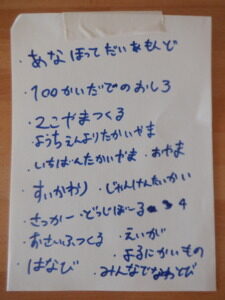 ・あなほってだいあもんど
・100かいだてのおしろ
・2こやまつくる
・ようちえんよりたかいやま
・いちばんたかいやま ・おやま
・すいかわり ・じゃんけんたいかい
・さっかー ・どっじぼーる
・おさいふつくる ・えいが
・よるにかいもの
・はなび ・みんなでなわとび